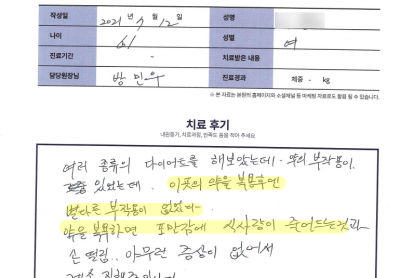 작성일 2021 년 9 월 12 일 성명
나이 61 성별 여
진료기간 - 치료받은 내용
담당원장님 방민우 진료경과 체중 - kg
※ 본 자료는 본원의 홈페이지와 소셜채널 등 마케팅 자료로도 활용 될 수 있습니다.
치료 후기
내원동기, 치료과정, 만족도 등을 적어 주세요
여러 종류의 다이어트를 해보았는데. 약의 부작용이
있었는데. 이곳의 약을 복용후엔
별다른 부작용이 없었다
약을 복용하면 포만감에 식사량이 줄어드는것과
손 떨림, 아무런 증상이 없어서
계속